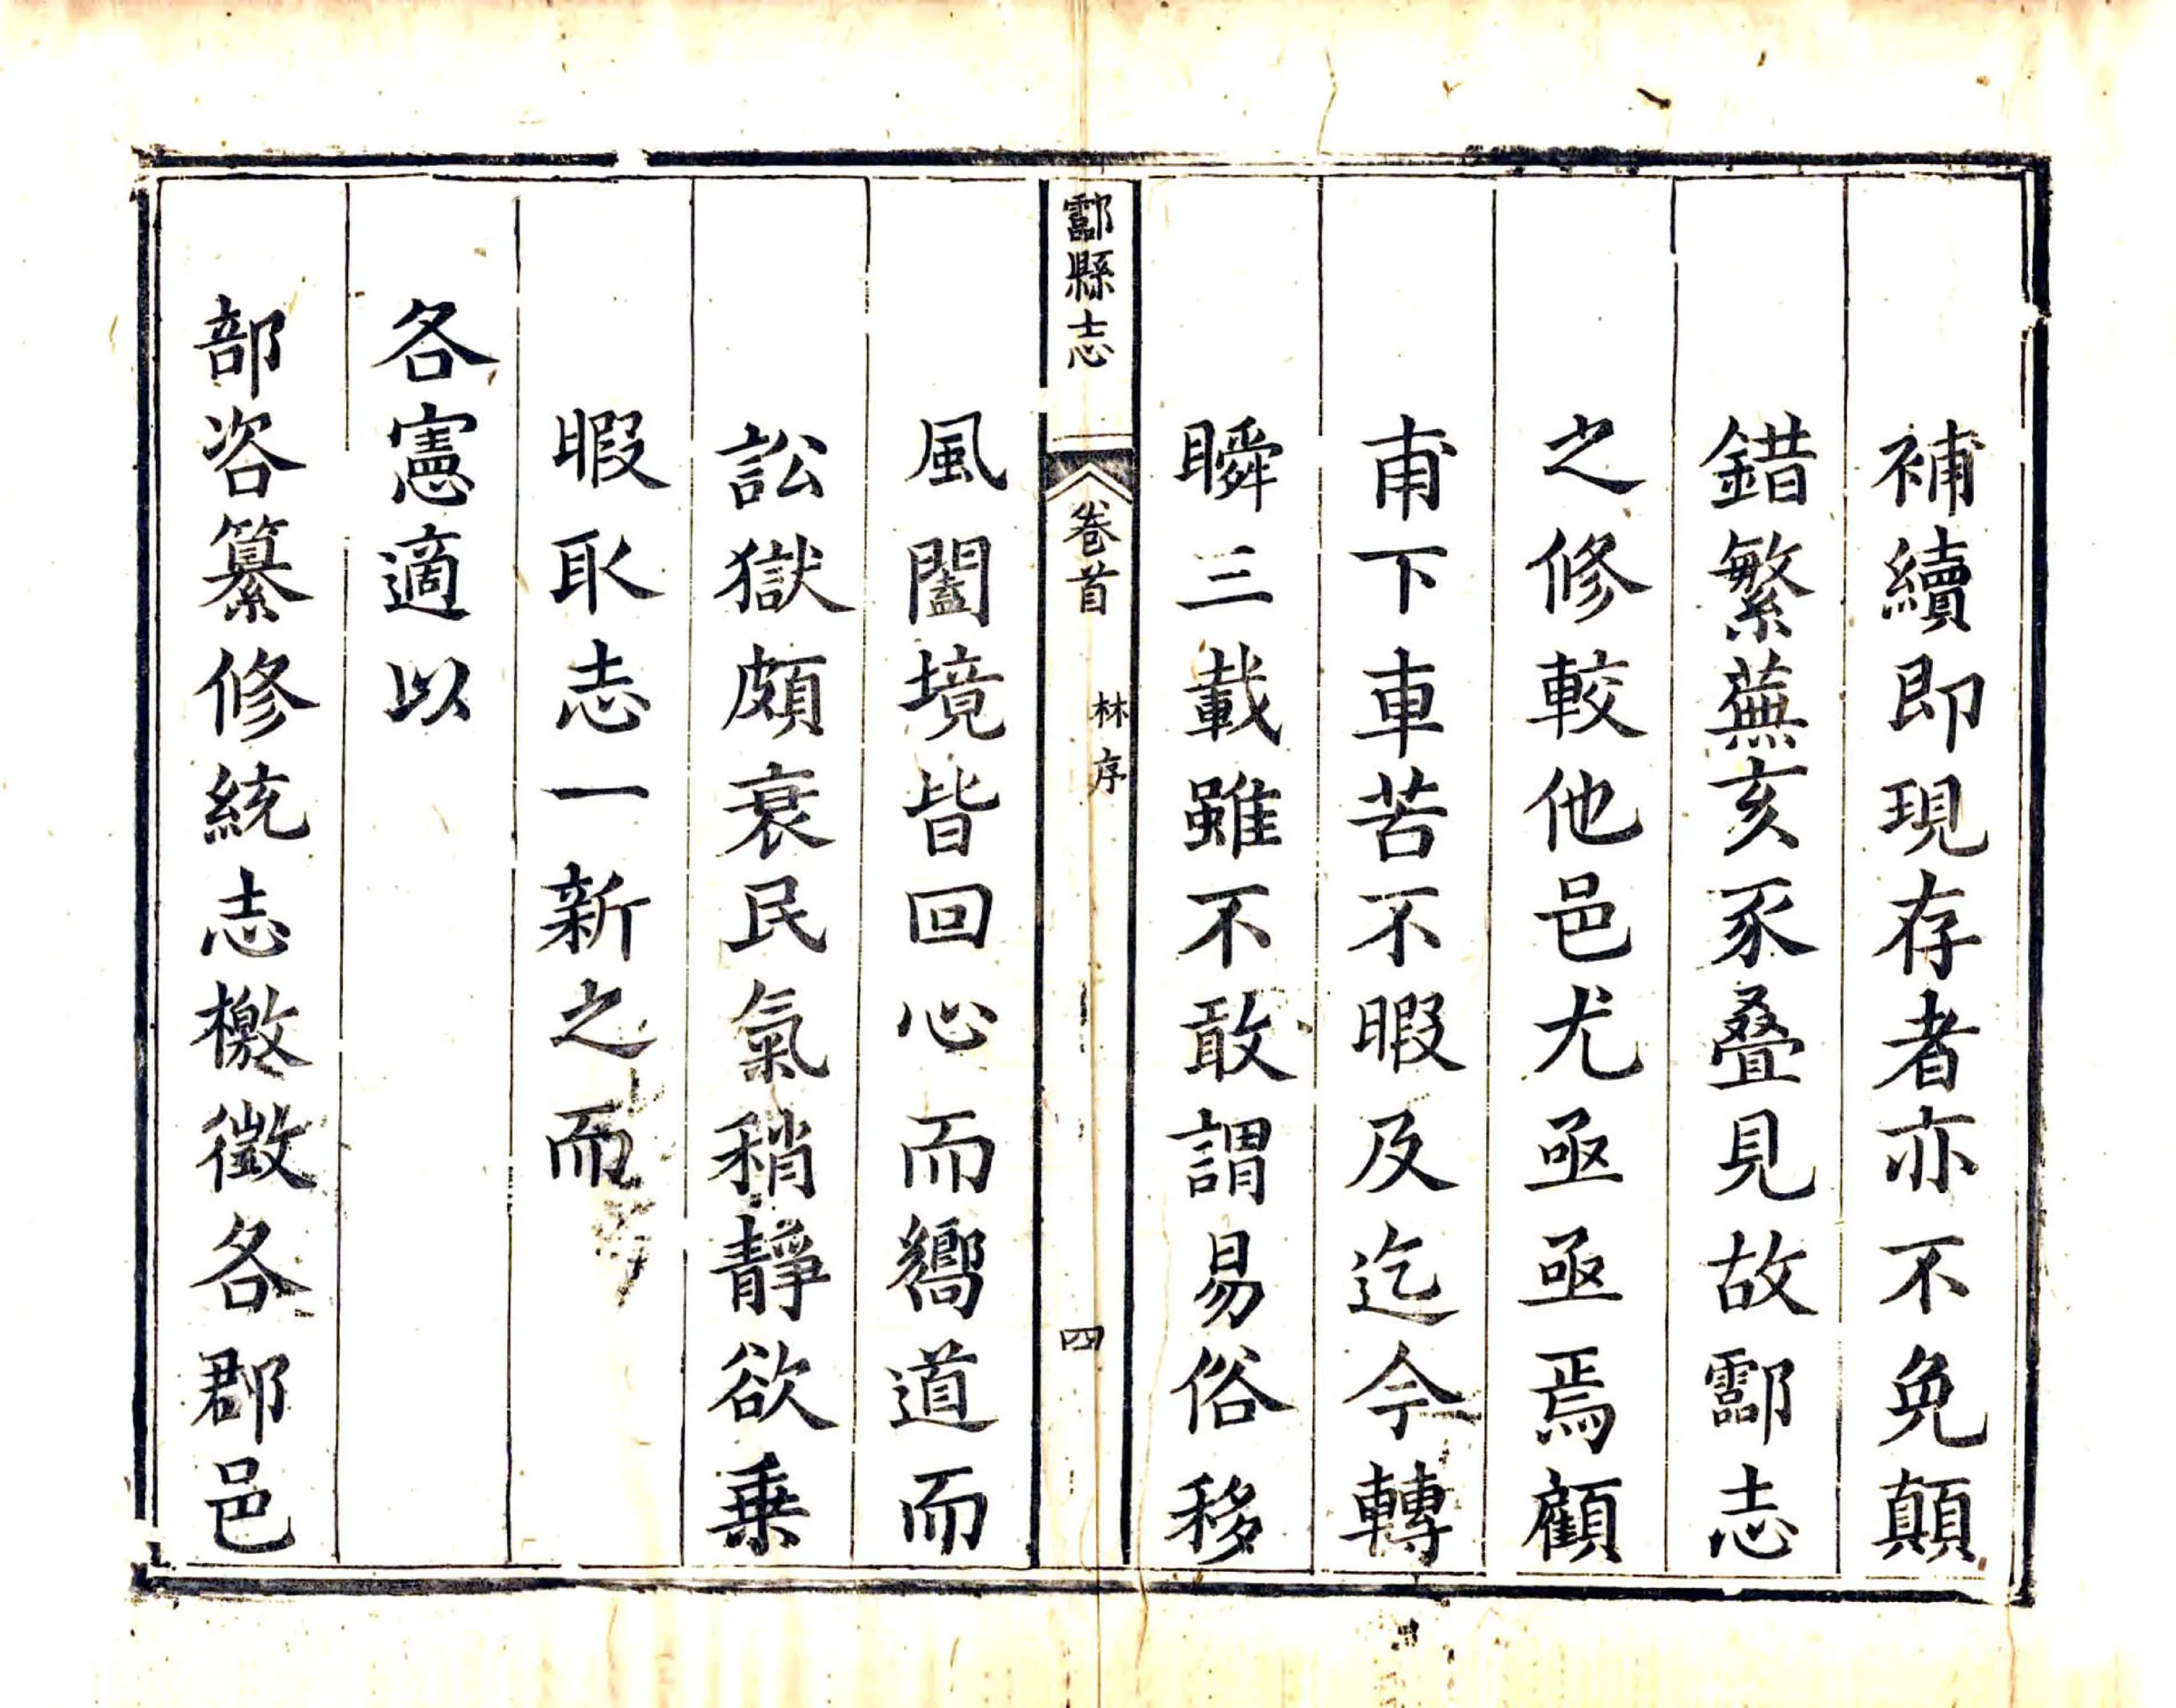 補續即現存者亦不免顛
錯繁蕪亥豕疊見故酃志
之修較他邑尤亟亟焉顧
甫下車苦不暇及迄今轉
瞬三載雖不敢謂易俗移
酃縣志
卷首
林序
四
風闔境皆回心而嚮道而
訟獄頗衰民氣稍靜欲乗
暇取志一新之而
各憲適以
部咨纂修統志檄徵各郡邑